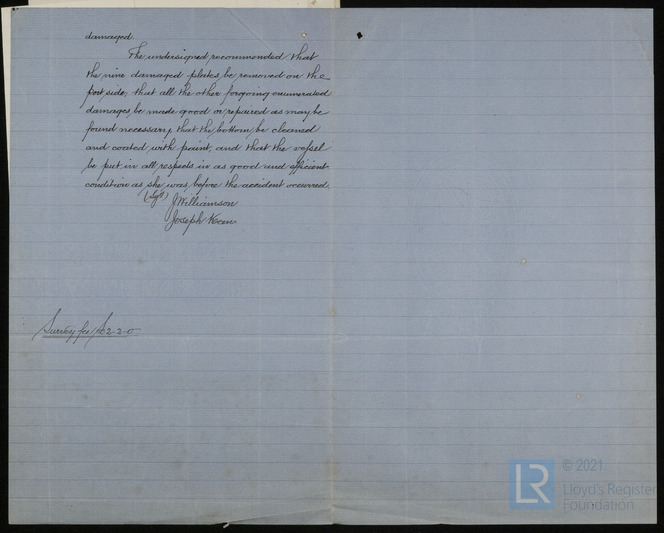 damaged.
The undersigned recommended that
the nine damaged plates be removed on the
port side, that all the other forgoing enumerated
damages be made good or repaired as may be
found necessary, that the bottom be cleaned
and coated with paint, and that the vessel
be put in all respects in as good and efficient
condition as she was before the accident occurred.
(Sgd) J Williamson
Joseph Keen
Survey fee £2-2-0
LR © 2021
Lloyd's Register
Foundation